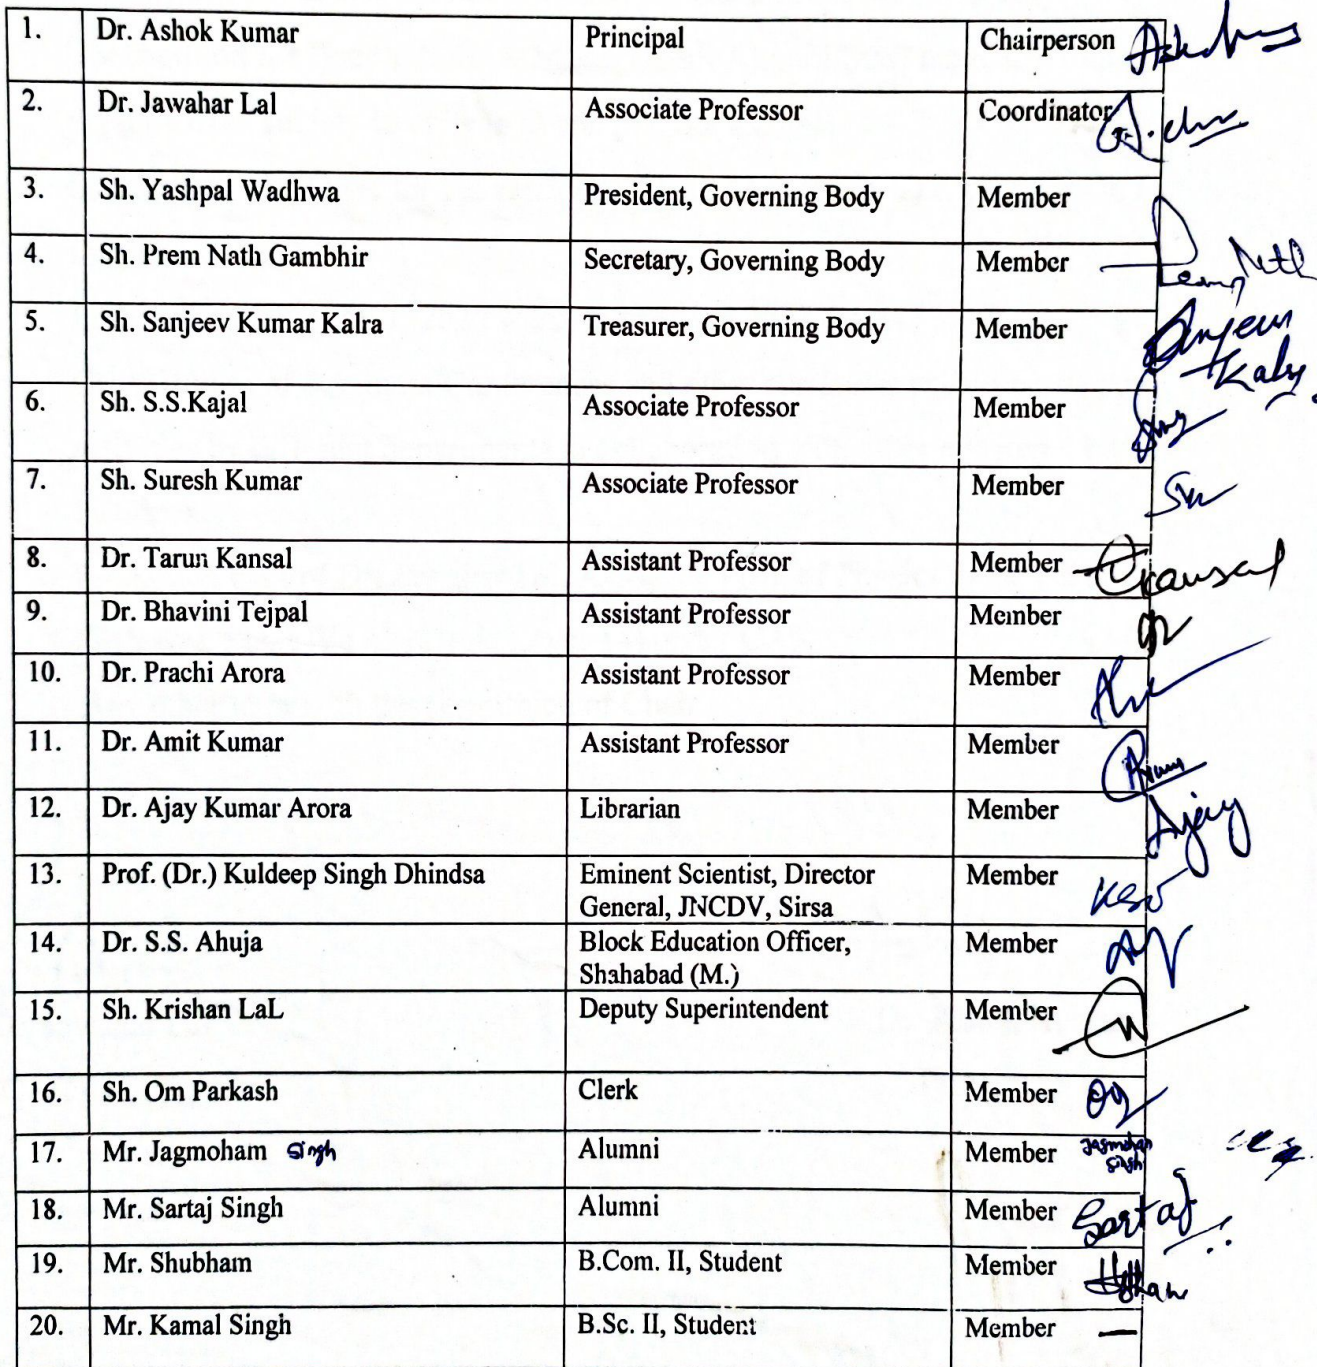 1. Dr. Ashok Kumar Principal Chairperson
2. Dr. Jawahar Lal Associate Professor Coordinator
3. Sh. Yashpal Wadhwa President, Governing Body Member
4. Sh. Prem Nath Gambhir Secretary, Governing Body Member Prem Nath
5. Sh. Sanjeev Kumar Kalra Treasurer, Governing Body Member
6. Sh. S.S.Kajal Associate Professor Member
7. Sh. Suresh Kumar Associate Professor Member
8. Dr. Tarun Kansal Assistant Professor Member Tkansal
9. Dr. Bhavini Tejpal Assistant Professor Member
10. Dr. Prachi Arora Assistant Professor Member
11. Dr. Amit Kumar Assistant Professor Member
12. Dr. Ajay Kumar Arora Librarian Member Ajay
13. Prof. (Dr.) Kuldeep Singh Dhindsa Eminent Scientist, Director Member
General, JNCDV, Sirsa
14. Dr. S.S. Ahuja Block Education Officer, Member
Shahabad (M.)
15. Sh. Krishan LaL Deputy Superintendent Member
16. Sh. Om Parkash Clerk Member
17. Mr. Jagmoham Singh Alumni Member Jagmohan
Singh
18. Mr. Sartaj Singh Alumni Member Sartaj
19. Mr. Shubham B.Com. II, Student Member
20. Mr. Kamal Singh B.Sc. II, Student Member —